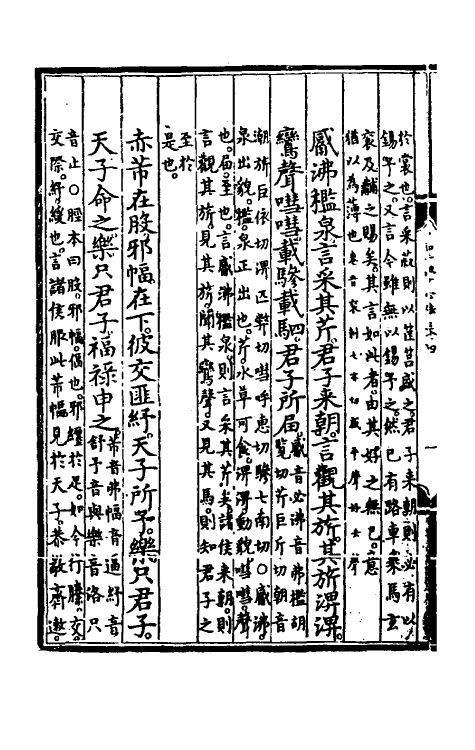 於裳也。言采菽則以筐筥盛之。君子來朝則必有以
錫予之。又言今雖無以錫予之。然已有路車乘馬玄
袞及黼之賜矣。其言如此者。由其好之無已。意
猶以為薄也
觱沸檻泉言采其芹。君子來朝。言觀其旂。其旂淠淠。
鸞聲嘒嘒載驂載駟。君子所屆
觱音必沸音弗檻胡
覽切芹巨斤切朝音
潮旂巨依切淠匹弊切嘒呼惠切驂七南切。○觱沸。
泉出貌。檻泉正出也。芹。水草。可食。淠淠。動貌。嘒嘒。聲
也。屆。至也。言觱沸檻泉。則言采其芹矣。諸侯來朝。則
言觀其旂。見其旂。聞其鸞聲。又見其馬。則知君子之
至於
是也。
赤芾在股邪幅在下。彼交匪紓。天子所予。樂只君子。
天子命之。樂只君子。福祿申之
芾音弗幅音逼紓音
舒予音與樂音洛只
音止○脛本曰股。邪幅。偪也。邪纏於足。如今行縢。交。
交際。紓。緩也。言諸侯服此芾偪見於天子。恭敬齊遬。